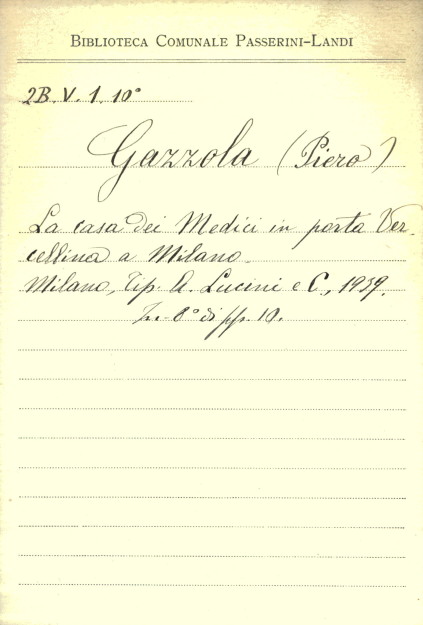 BIBLIOTECA COMUNALE PASSERINI-LANDI
2B. V. 1. 10°
Gazzola (Piero)
La casa dei Medici in porta Ver-
cellina a Milano.
Milano, Tip. A. Lucini e C., 1939.
8° di pp. 10.